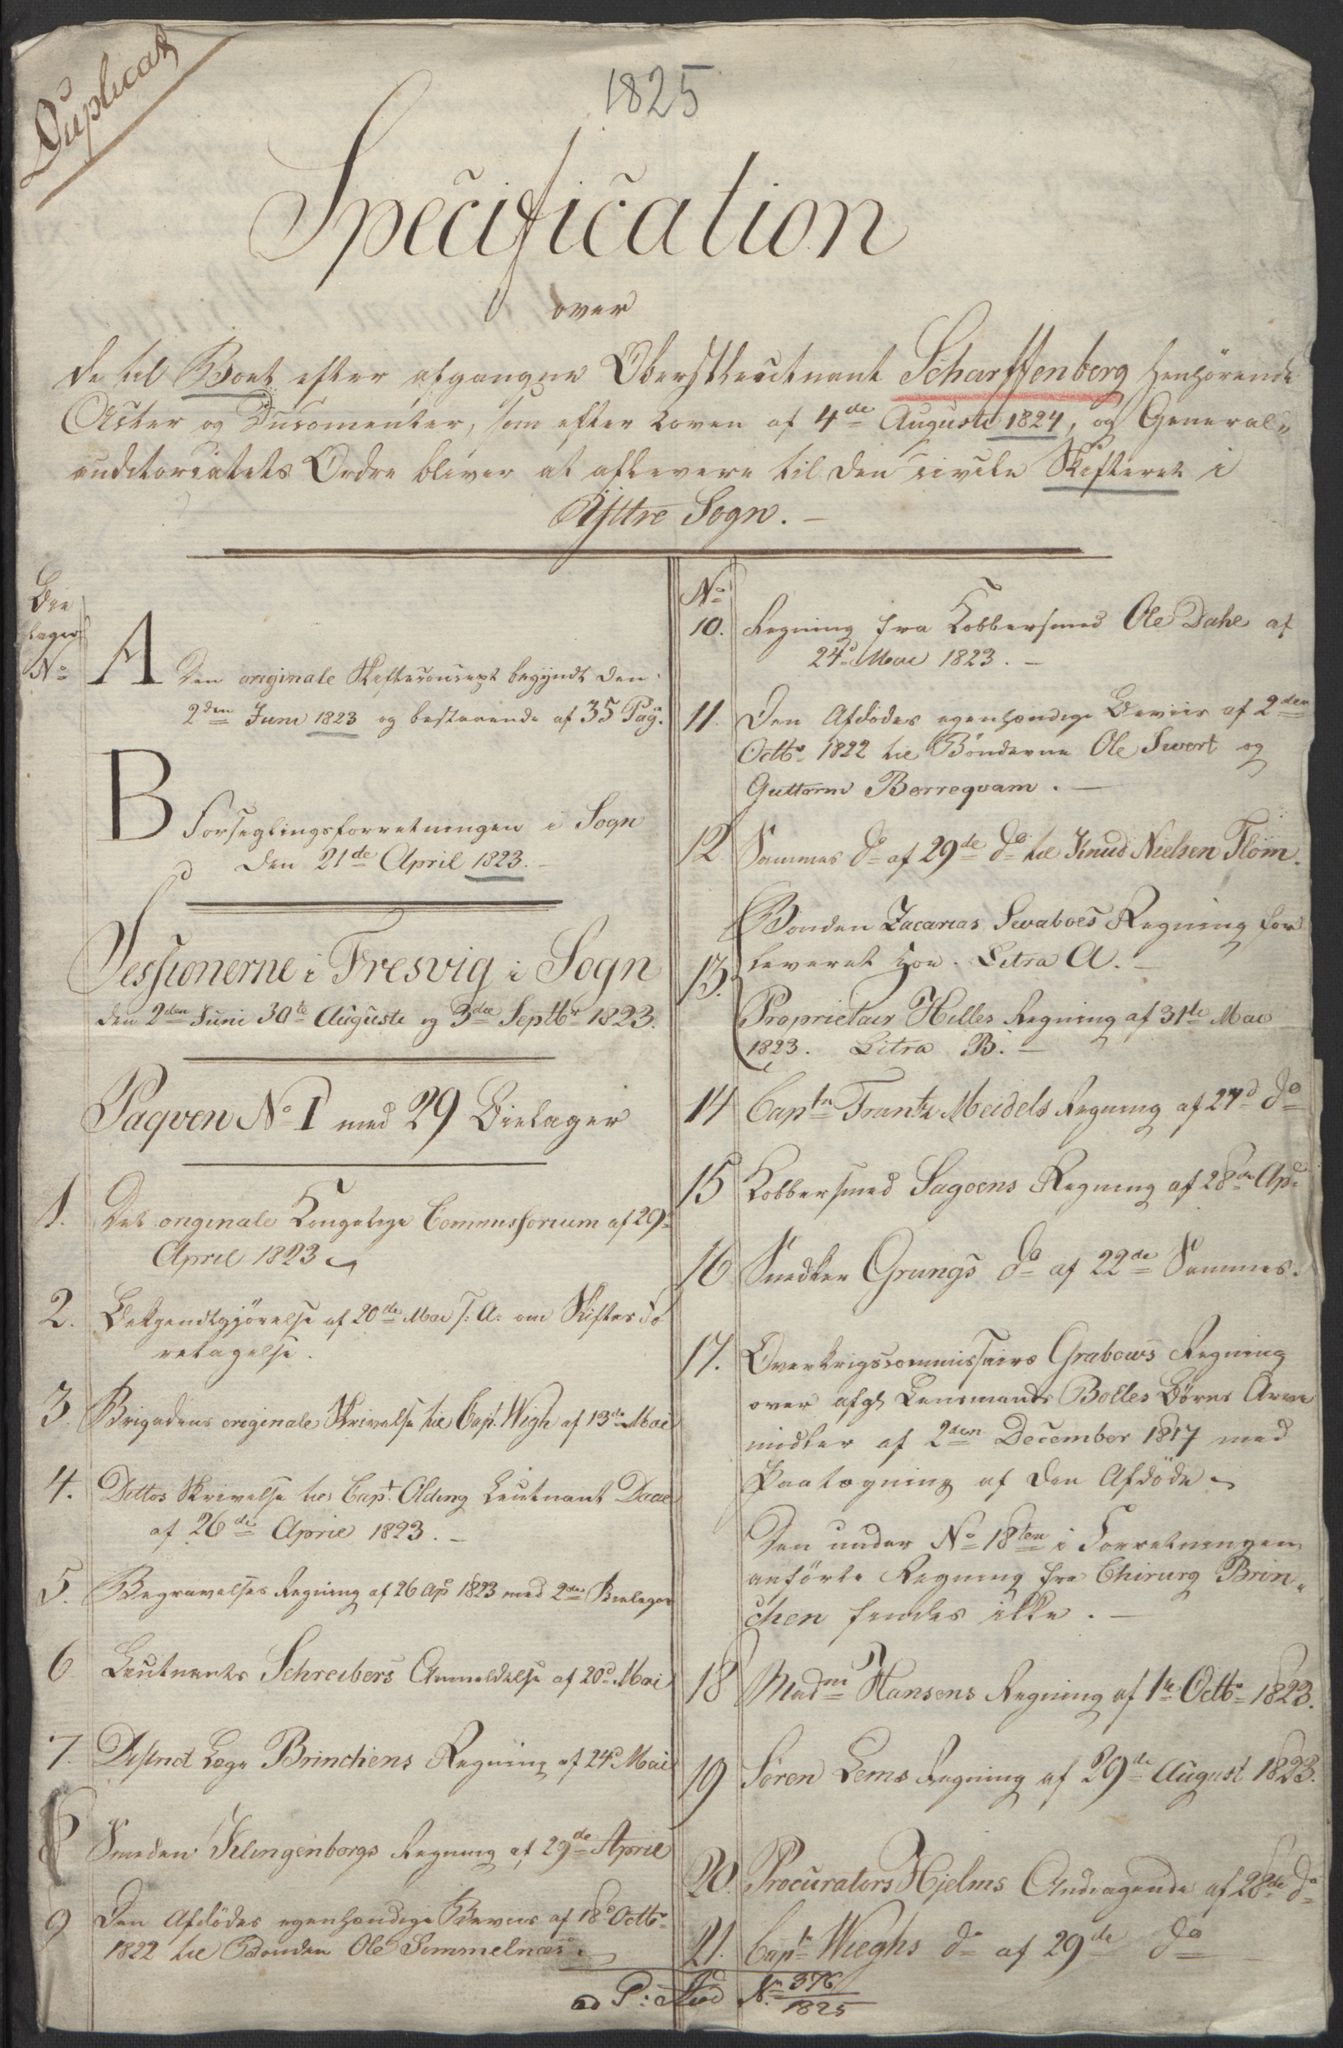 Duplicat
1825
Specification
over
de til Boet efter afgangne Oberstleutnant Scharffenberg henhörende
Acter og Documenter, som efter Loven af 4de Augusti 1824, og General-
auditoriatets Ordre bliver at aflevere til den civile Skifteret i
Ÿttre Sogn. —
Bie
lages
No
A Den originale Skifteconcept begyndt den
2den Juni 1823 og bestaaende af 35 Pag.
B Forseglingsforretningen i Sogn
den 21de April 1823. —
Sessionerne i Fresvig i Sogn
den 2den Juni 30te Augusti og 3die Septbr 1823.
Paqven No 1 med 29 Bielager
1. Det originale Kongelige Commissorium af 29
April 1823
2. Bekjendtgjörelse af 20de Mai s: A: om Skiftets fo
retagelse.
3 Brigadens originale Skrivelse til Capt. Wigh af 13de Mai
4. Dittos Skrivelse til Capt. Olding Leutnant Daae
af 26de April 1823. —
5. Begravelses Regning af 26 Apl 1823 med 2de Bielager
6 Leutnants Schreibers Anmeldelse af 20d Mai
7. District Læge Brinchens Regning af 24d Mai
8 Smeden Klingenbergs Regning af 29de April
9 Den Afdödes egenhændige Beviis af 18d Octbr
1822 til Bonden Ole Simmelnæs.
No
10. Regning fra Kobbersmed Ole Dahl af
24d Mai 1823. —
11. Den Afdödes egenhændige Beviis af 2den
Octbr 1822 til Bönderne Ole Swort og
Guttorm Berreqvam. —
12 Sammes do af 29de do til Knud Nielsen Flom.
13. Bonden Zacarias Swaboes Regning for
leveret Hoe. Litra A. —
Proprietair Hilles Regning af 31te Mai
1823. Litra B. —
14 Captn Frantz Meidels Regning af 27d do
15 Kobbersmed Sagoens Regning af 28de Apl
16 Snedker Grungs do af 22de Sammes.
17. Overkrigscommissairs Grabows Regning
over afgl Lensmands Bolles Börns Arve
midler af 2den December 1817 med
Paategning af den Afdöde.
Den under No 18den i Forretningen
anförte Regning fra Chirurg Brin-
chen findes ikke. —
18 Madm Hansens Regning af 1te Octbr 1823.
19 Sören Lems Regning af 29de August 1823.
20. Procurators Hjelms Andragende af 28de do
21. Captn Wieghs do af 29de do
ad P: No 376
1825